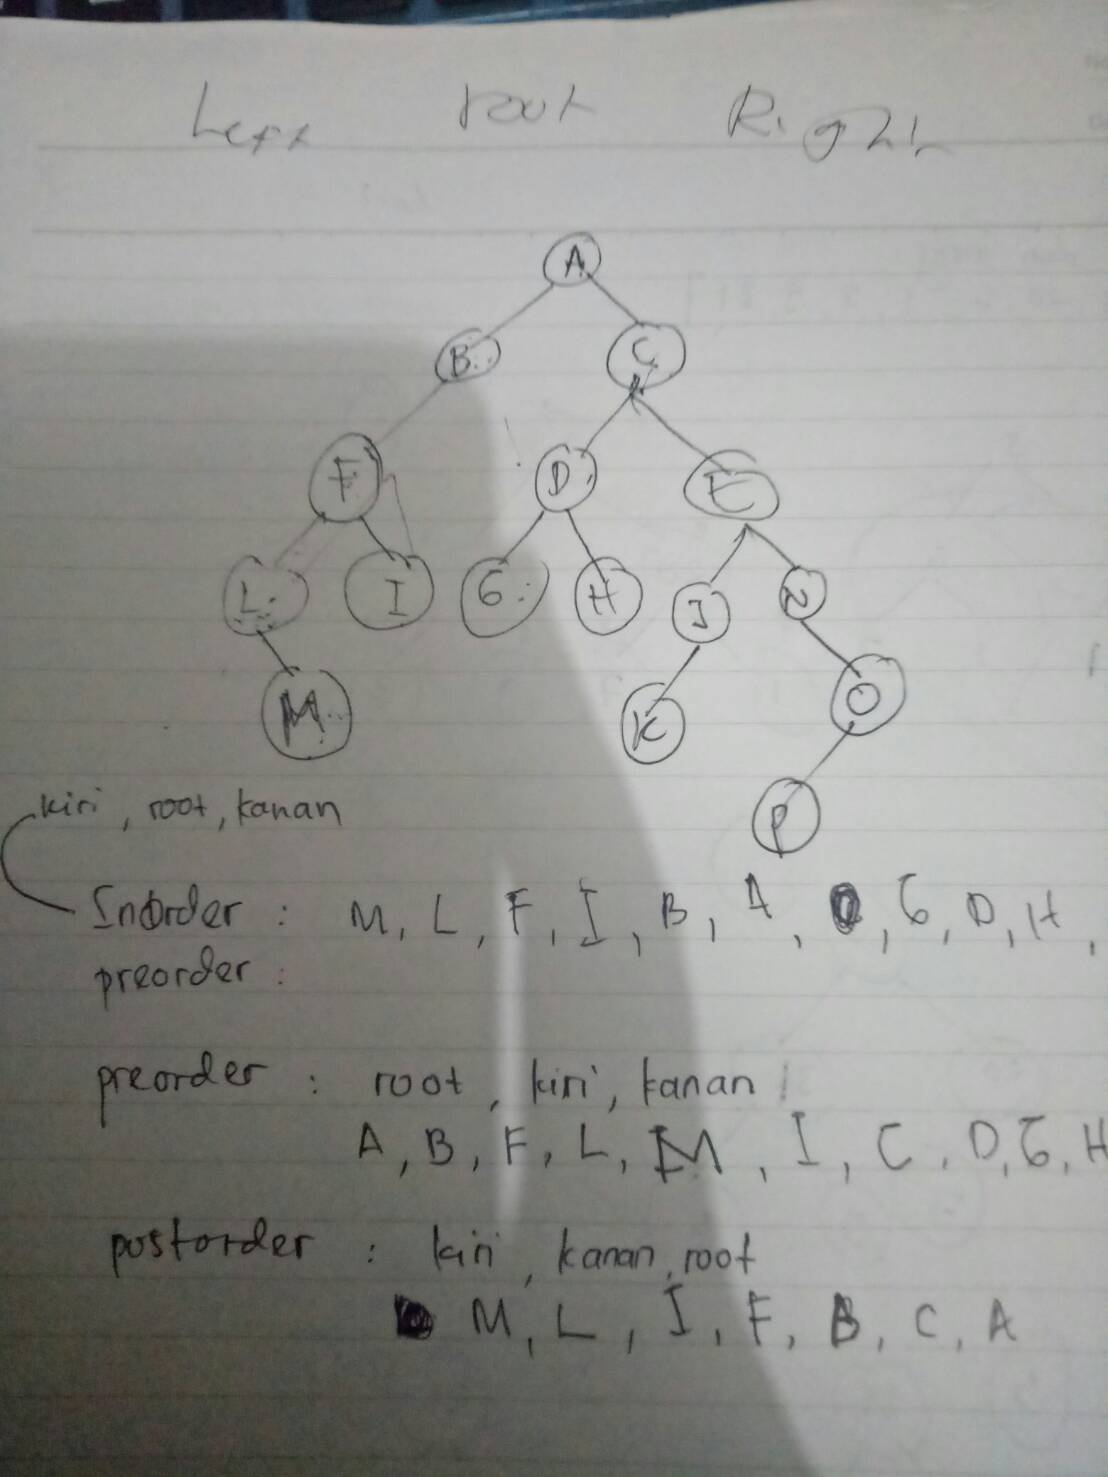 Left root Right
A
B C
F D E
L I G H J N
M K O
P
kiri, root, kanan
Inorder : M, L, F, I, B, A, G, D, H,
preorder :
preorder : root, kiri, kanan
A, B, F, L, M, I, C, D, G, H
postorder : kiri, kanan, root
M, L, I, F, B, C, A